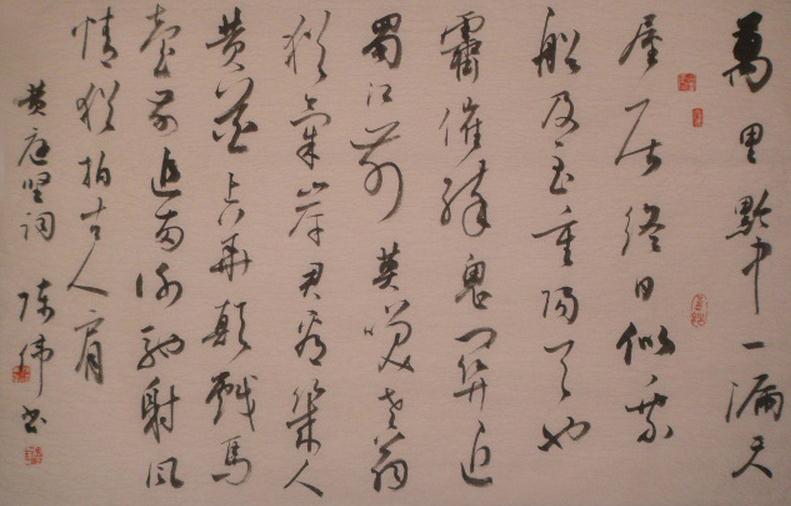 萬里黔中一漏天
屋居終日似乘
船及至重陽天也
霽催醉鬼門關近
蜀江前莫笑老翁
猶氣岸君看幾人
黄菊上華顛戲馬
臺南追兩謝馳射風
情猶拍古人肩
黄庭坚词 陈伟书